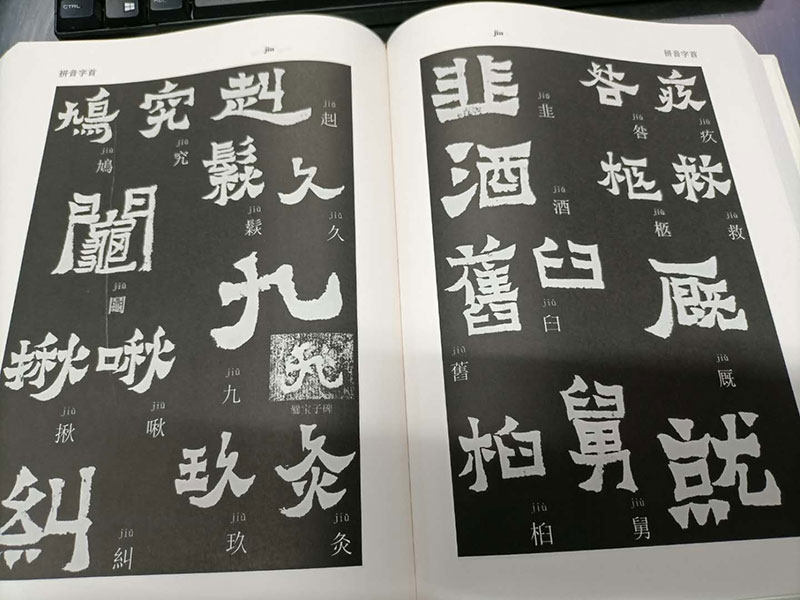 jiu
拼音字首
鳩 究 赳
jiū 鳩
jiū 究
jiū 赳
鬏 久
jiū 鬏
jiǔ 久
鬮
jiū 鬮
九
jiǔ 九
九
爨宝子碑
揪 啾
jiū 揪
jiū 啾
糾 玖 灸
jiū 糾
jiǔ 玖
jiǔ 灸
jiu
拼音字首
韭 咎 疚
jiǔ 韭
jiù 咎
jiù 疚
酒 柩 救
jiǔ 酒
jiù 柩
jiù 救
舊 臼 厩
jiù 舊
jiù 臼
jiù 厩
桕 舅 就
jiù 桕
jiù 舅